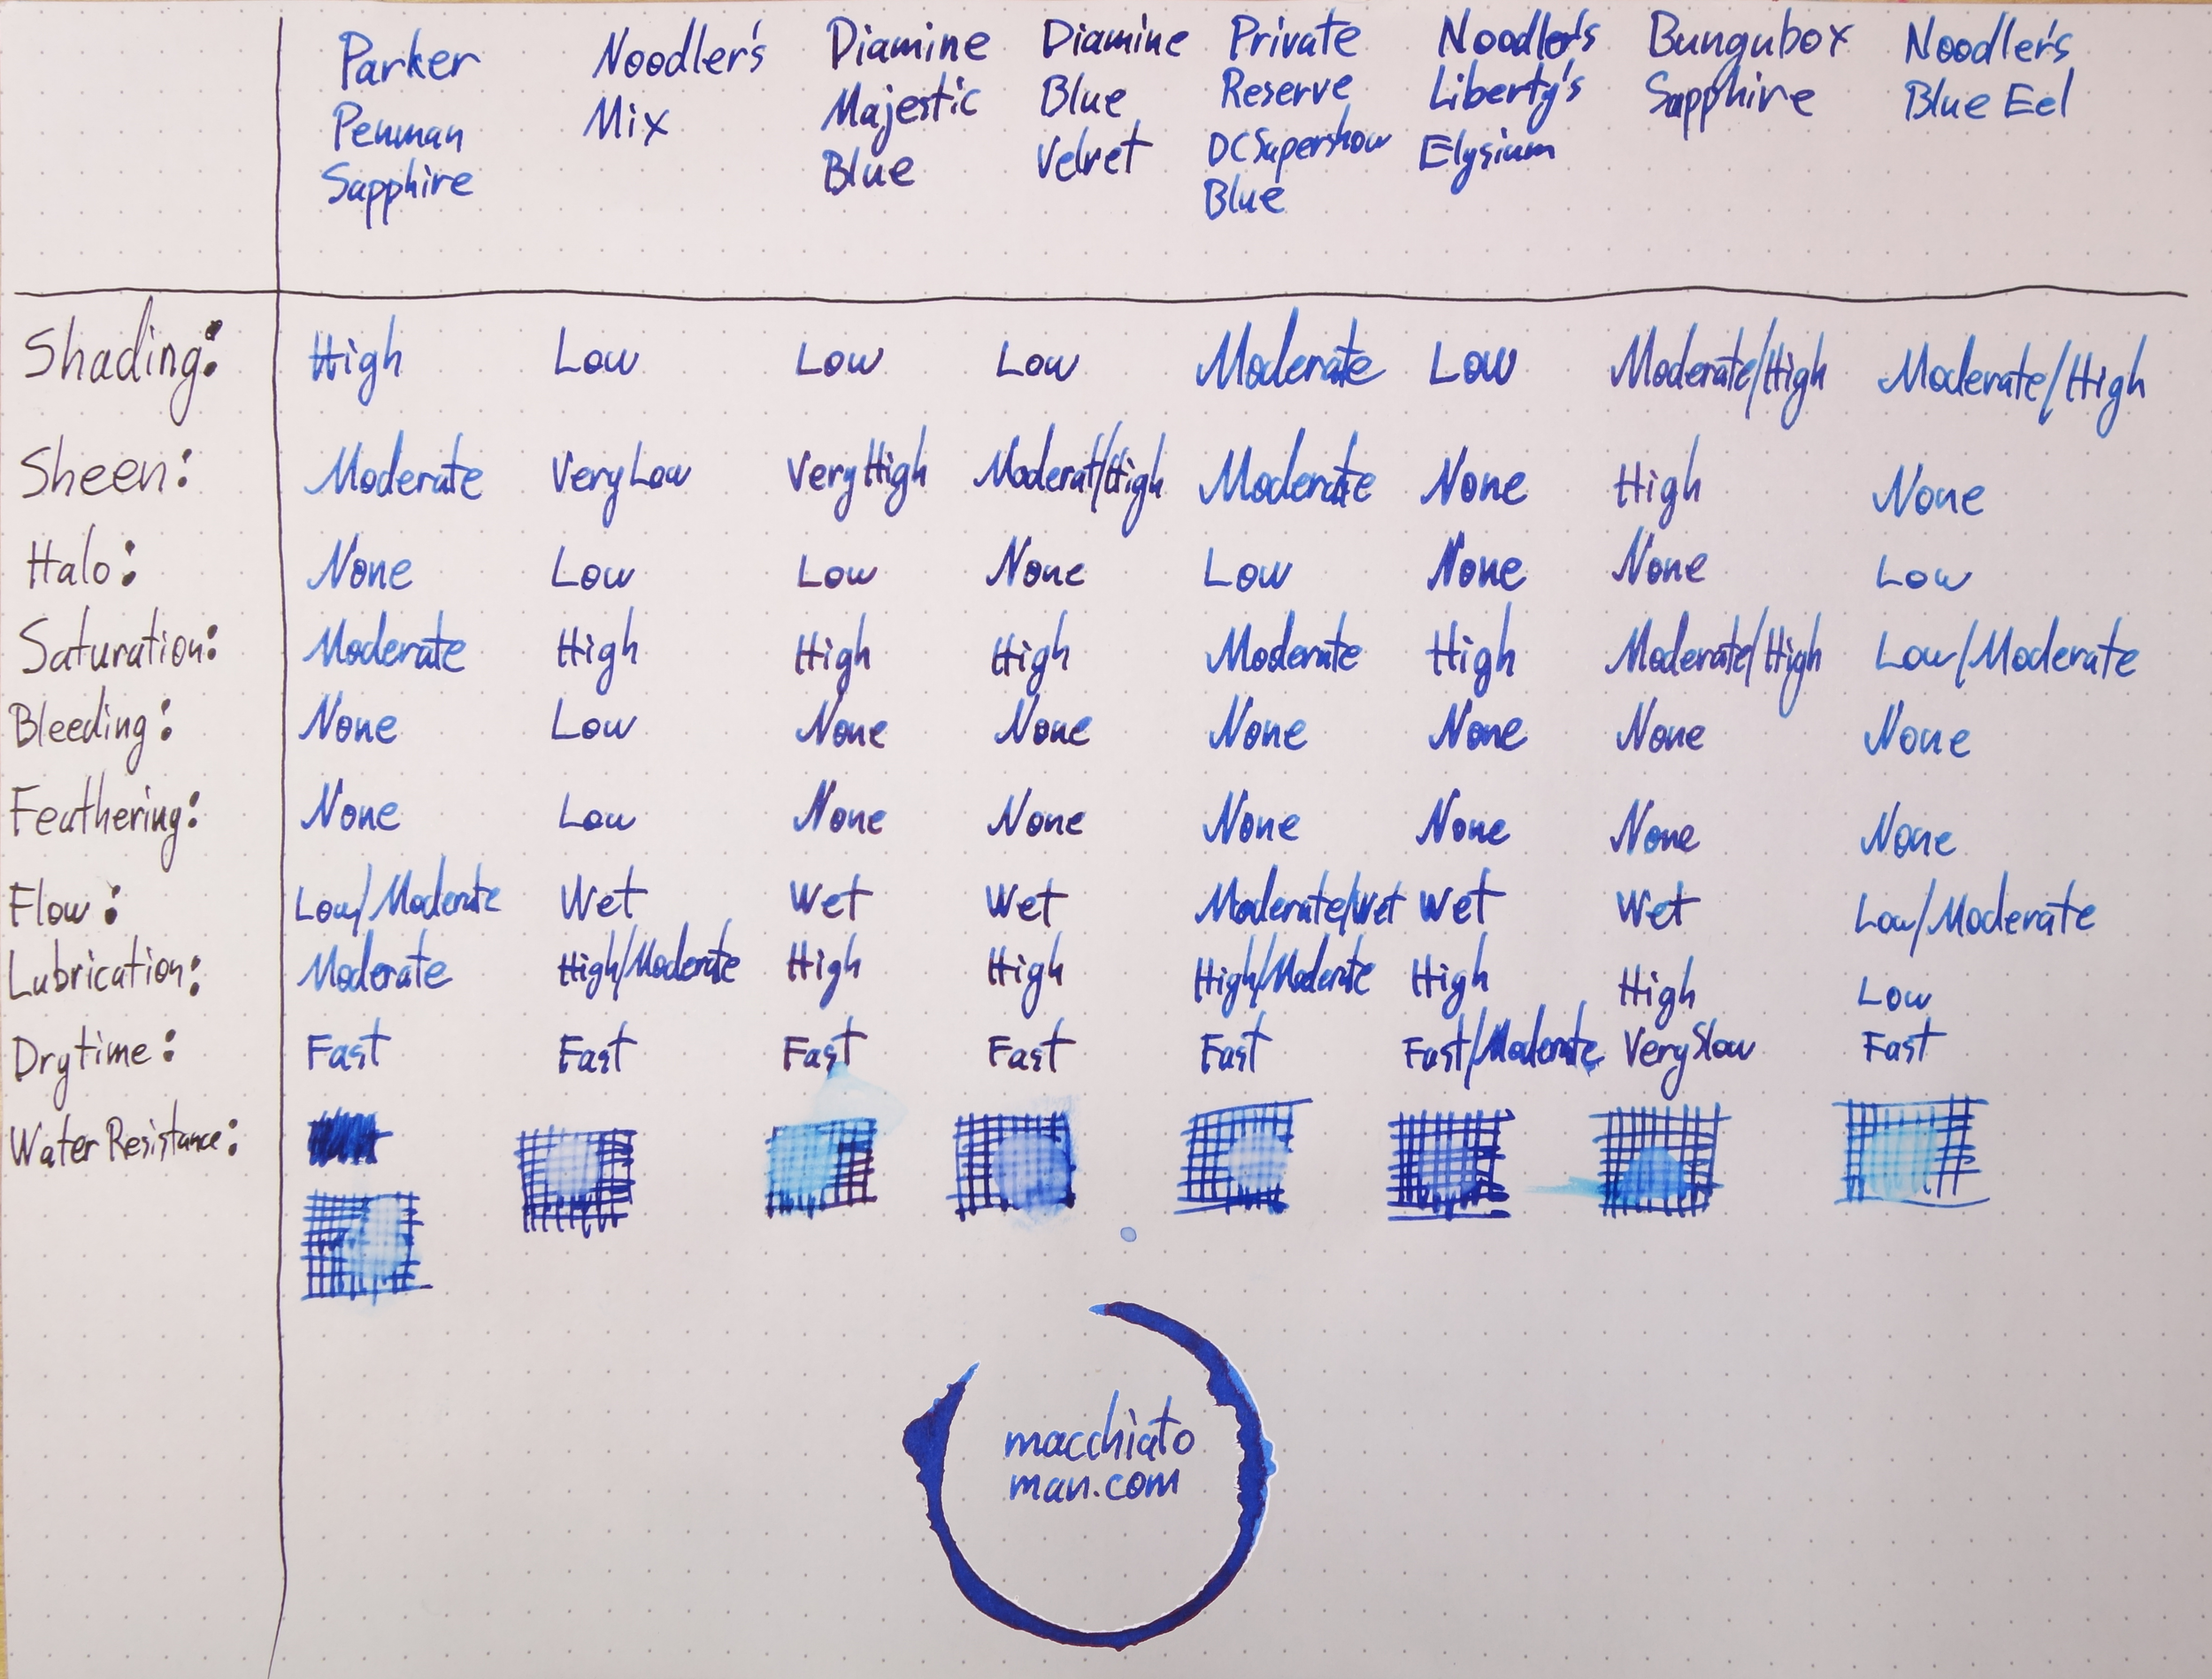 Parker Noodler's Diamine Diamine Private Noodler's Bungubox Noodler's
Penman Mix Majestic Blue Reserve Liberty's Sapphire Blue Eel
Sapphire Blue Velvet DC Supershow Elysium
Blue
Shading: High Low Low Low Moderate Low Moderate/High Moderate/High
Sheen: Moderate Very Low Very High Moderat/High Moderate None High None
Halo: None Low Low None Low None None Low
Saturation: Moderate High High High Moderate High Moderate/High Low/Moderate
Bleeding: None Low None None None None None None
Feathering: None Low None None None None None None
Flow: Low/Moderate Wet Wet Wet Moderate/Wet Wet Wet Low/Moderate
Lubrication: Moderate High/Moderate High High High/Moderate High High Low
Drytime: Fast Fast Fast Fast Fast Fast/Moderate Very Slow Fast
Water Resistance:
macchiato
man.com